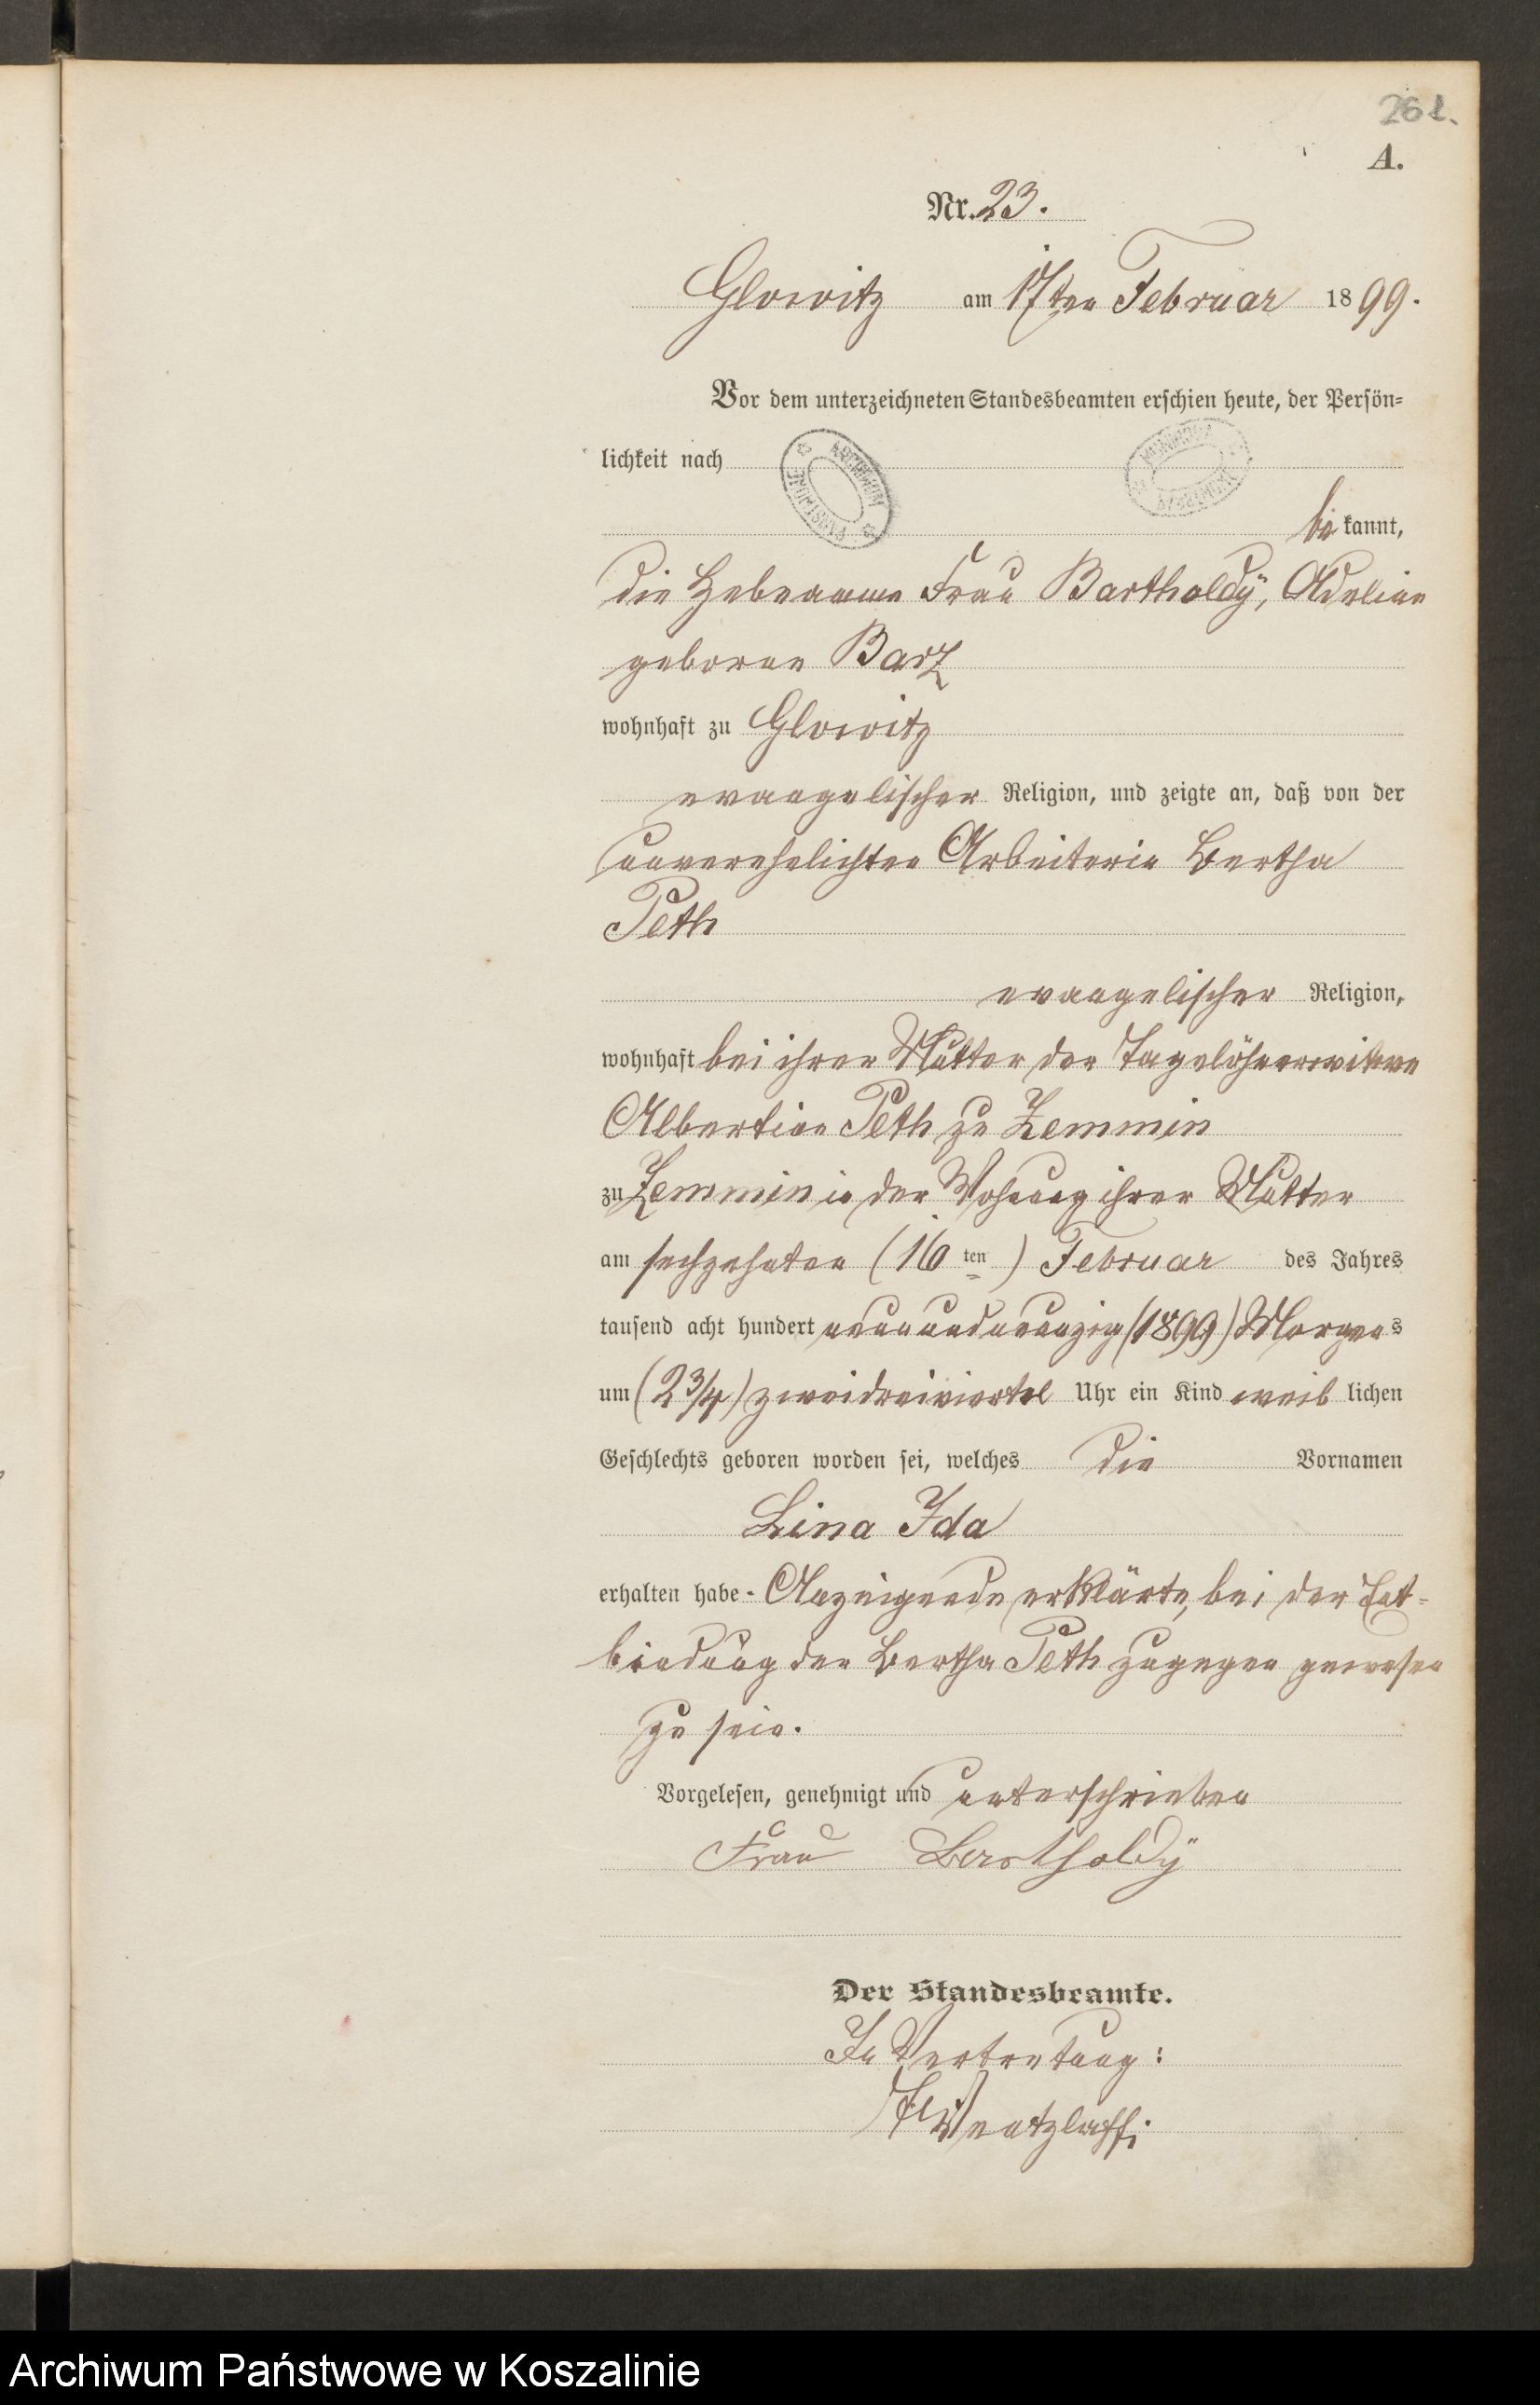 261.
A.
Nr. 23.
Glowitz am 17ten Februar 1899.
Vor dem unterzeichneten Standesbeamten erschien heute, der Persön=
lichkeit nach
bekannt,
die Hebeamme Frau Bartholdÿ, Adeline
geborne Barz
wohnhaft zu Glowitz
evangelischer Religion, und zeigte an, daß von der
unverehelichten Arbeiterin Bertha
Peth
evangelischer Religion,
wohnhaft bei ihrer Mutter der Tagelöhnerwitwe
Albertine Peth zu Zemmin
zu Zemmin in der Wohnung ihrer Mutter
am sechzehnten (16 ten) Februar des Jahres
tausend acht hundert neunundneunzig (1899) Morgens
um (2 3/4) zweidreiviertel Uhr ein Kind weiblichen
Geschlechts geboren worden sei, welches die Vornamen
Lina Ida
erhalten habe - Anzeigende erklärte, bei der Ent=
bindung der Bertha Peth zugegen gewesen
zu sein.
Vorgelesen, genehmigt und unterschrieben
Frau Bartholdÿ
Der Standesbeamte.
In Vertretung:
Wentzlaff
Archiwum Państwowe w Koszalinie